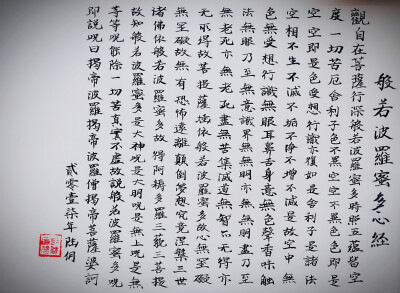 般若波羅蜜多心經
觀自在菩薩行深般若波羅蜜多時照五蘊皆空
度一切苦厄舍利子色不異空空不異色色即是
空空即是色受想行識亦復如是舍利子是諸法
空相不生不滅不垢不淨不增不減是故空中無
色無受想行識無眼耳鼻舌身意無色聲香味觸
法無眼界乃至無意識界無無明亦無無明盡乃至
無老死亦無老死盡無苦集滅道無智亦無得以
无所得故菩提薩埵依般若波羅蜜多故心無罣礙
無罣礙故無有恐怖遠離顛倒夢想究竟涅槃三世
諸佛依般若波羅蜜多故得阿耨多羅三藐三菩提
故知般若波羅蜜多是大神咒是大明咒是無上咒是無
等等咒能除一切苦真實不虛故說般若波羅蜜多咒
即說咒曰揭帝波羅揭帝波羅僧揭帝菩薩婆訶
貳零壹柒年